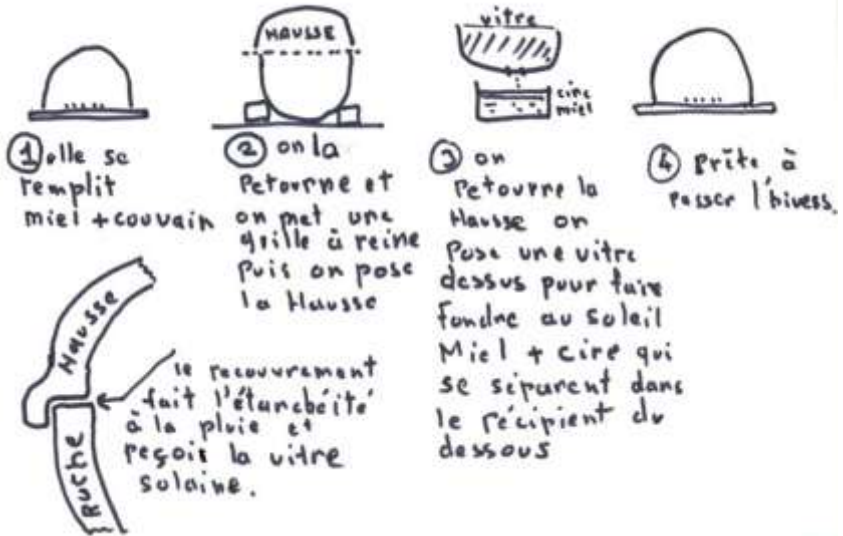 HAUSSE
vitre
cire
miel
① elle se
remplit
miel + couvain
② on la
retourne et
on met une
grille à reine
Puis on pose
la Hausse
③ on
retourne la
Hausse on
Pose une vitre
dessus pour faire
fondre au soleil
Miel + cire qui
se séparent dans
le récipient du
dessous
④ Prête à
passer l'hivers.
Hausse
RUCHE
le recouvrement
fait l'étanchéité
à la pluie et
reçoit la vitre
solaine.